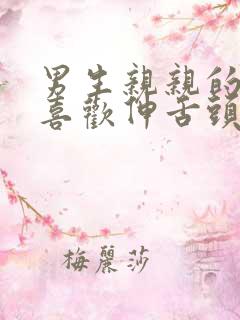 男生親親的
喜歡伸舌頭
梅麗莎